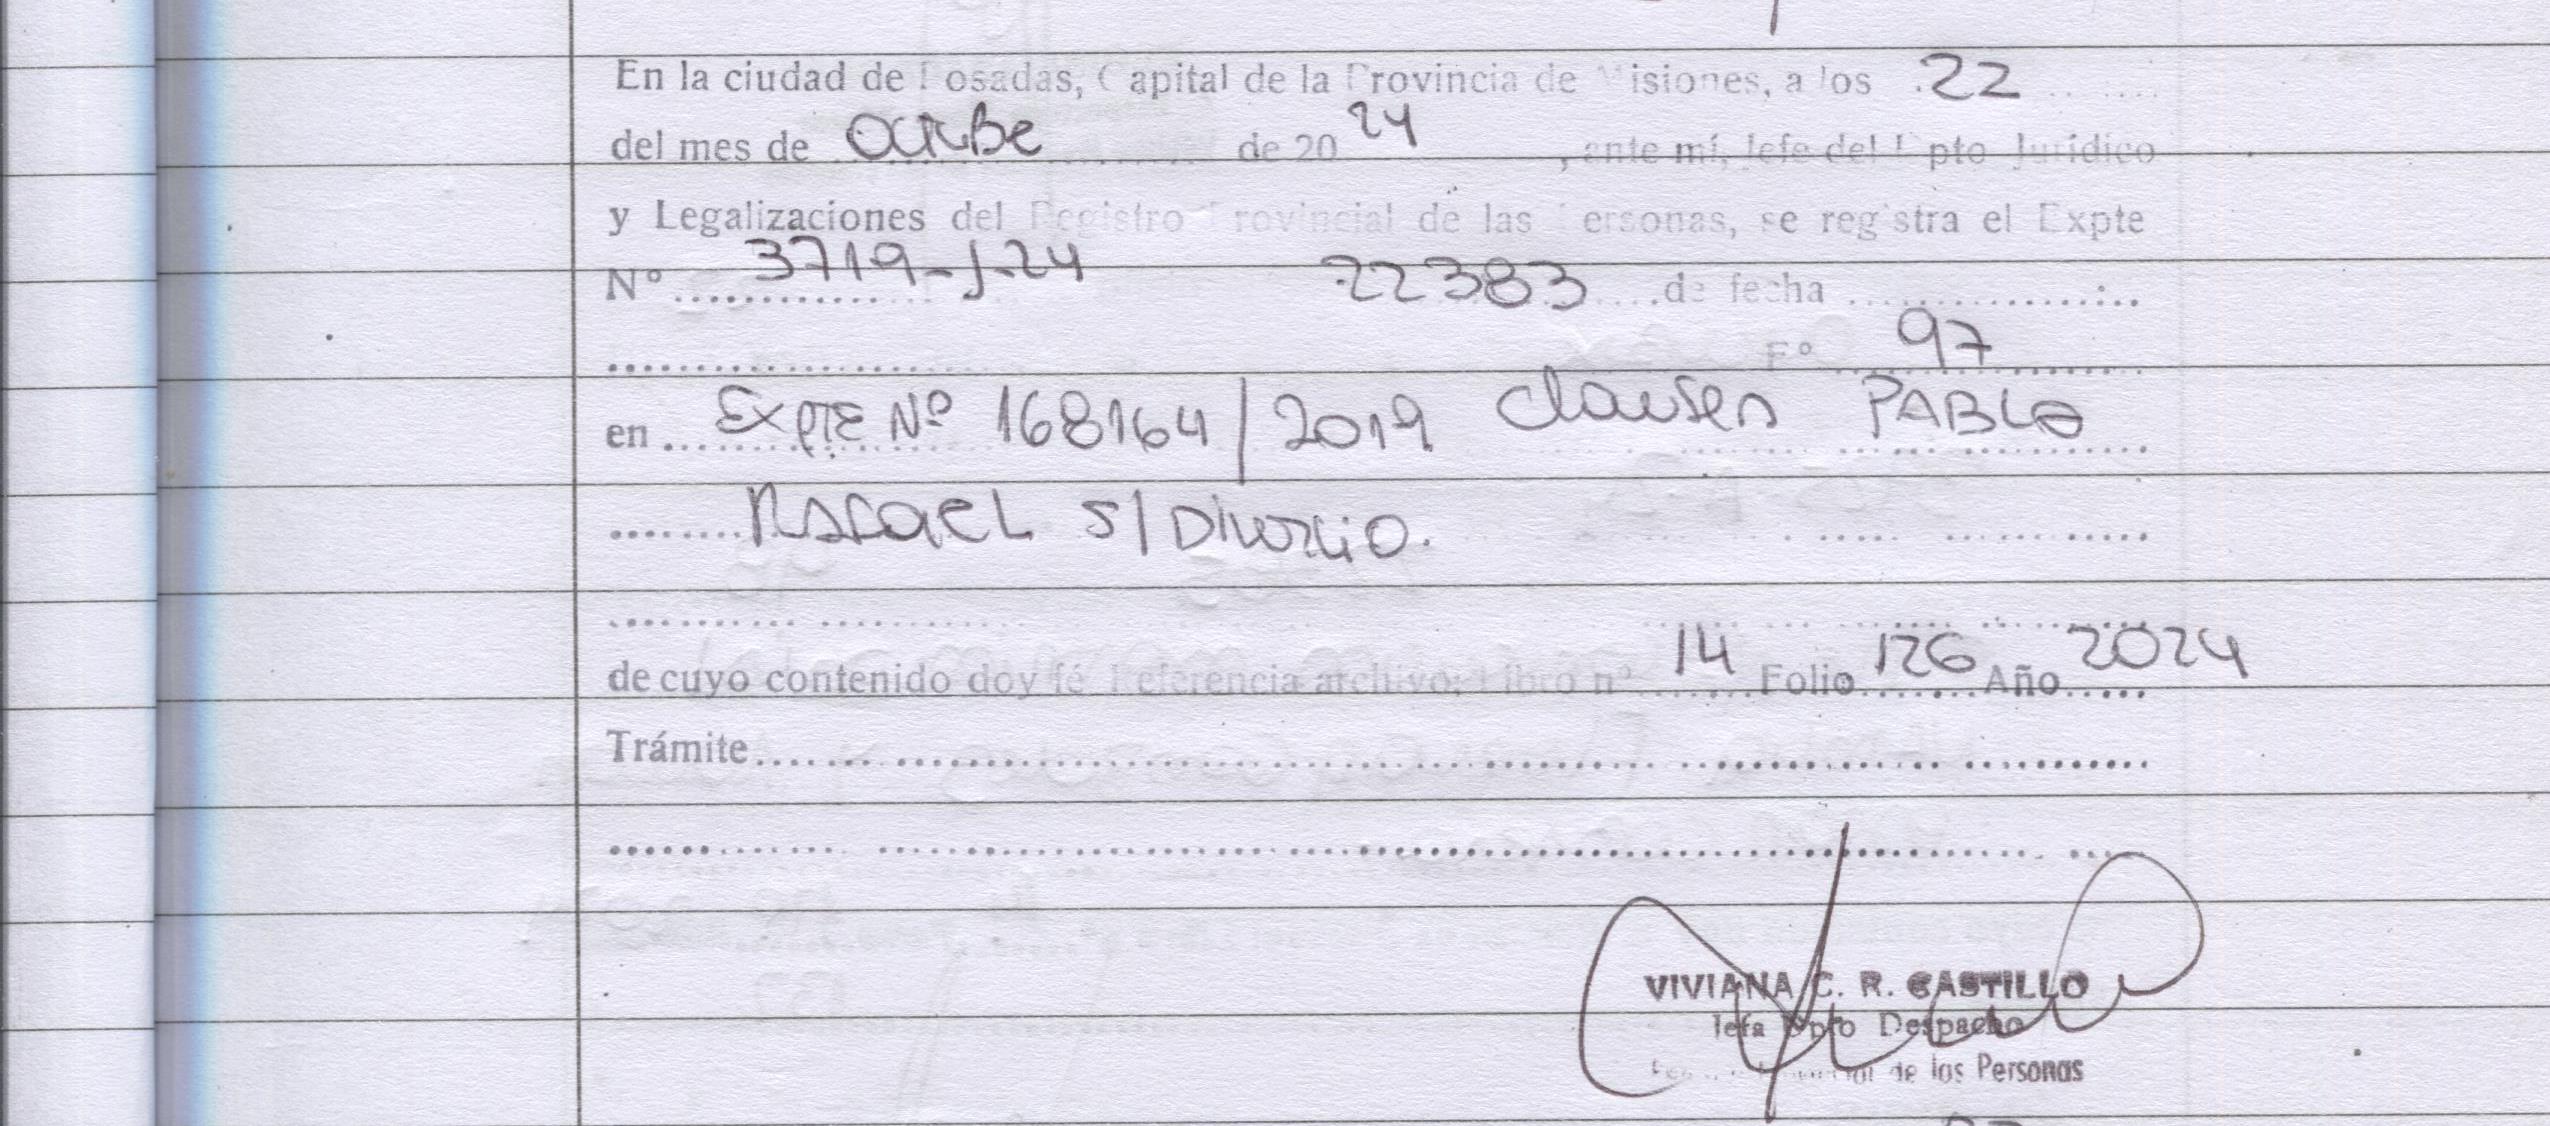 En la ciudad de Posadas, Capital de la Provincia de Misiones, a los 22
del mes de Octube de 2024, ante mí, Jefe del Dpto Jurídico
y Legalizaciones del Registro Provincial de las Personas, se registra el Expte
Nº 3719-J-24 22383 de fecha
Fº 97
en Expte Nº 168164/2019 Clausen PABLO
Rafael s/Divorcio.
de cuyo contenido doy fé Referencia archivo: Libro nº 14 Folio 126 Año 2024
Trámite
VIVIANA C. R. CASTILLO
Jefa Dpto Despacho
de las Personas